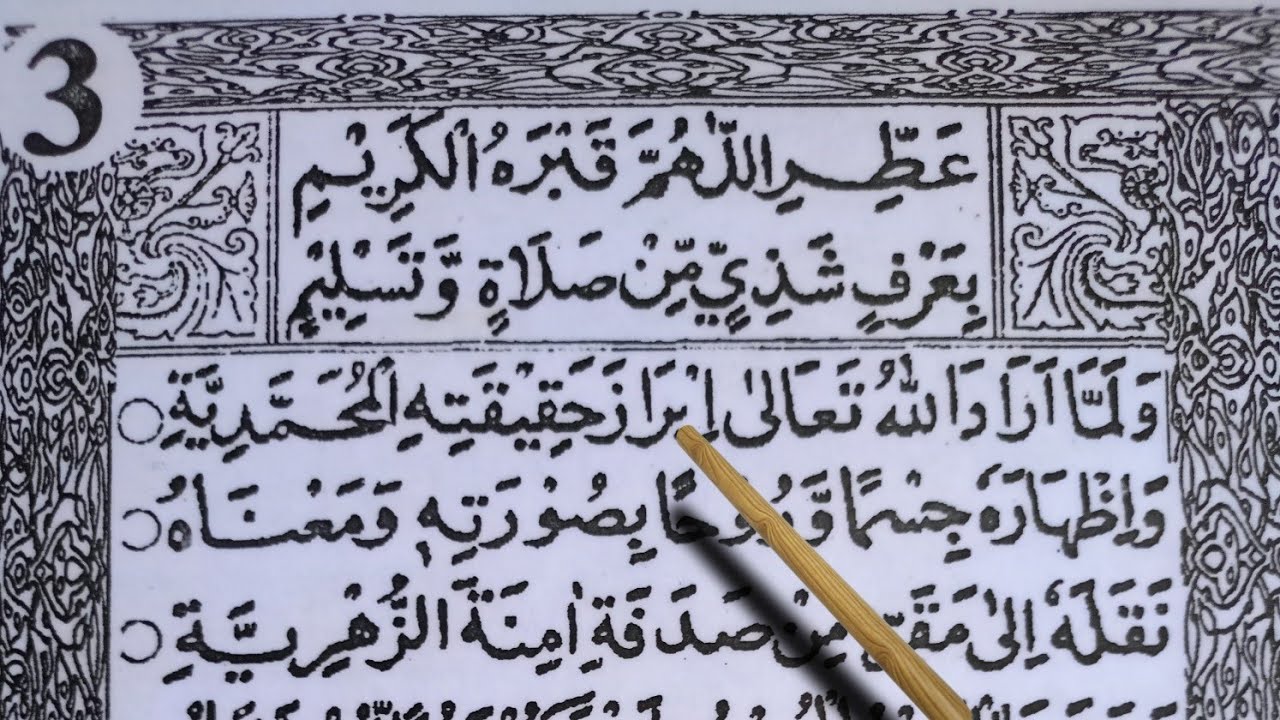 3
عَطِّرِ اللّٰهُمَّ قَبْرَهُ الْكَرِيْمِ
بِعَرْفٍ شَذِيٍّ مِّنْ صَلَاةٍ وَّتَسْلِيْمٍ
وَلَمَّا اَرَادَ اللهُ تَعَالىٰ اِبْرَازَ حَقِيْقَتِهِ الْمُحَمَّدِيَّةِ
وَاِظْهَارَهٗ جِسْمًا وَّرُوْحًا بِصُوْرَتِهٖ وَمَعْنَاهُ
نَقَلَهٗ اِلىٰ مَقَرِّهٖ مِنْ صَدَفَةِ اٰمِنَةَ الزُّهْرِيَّةِ